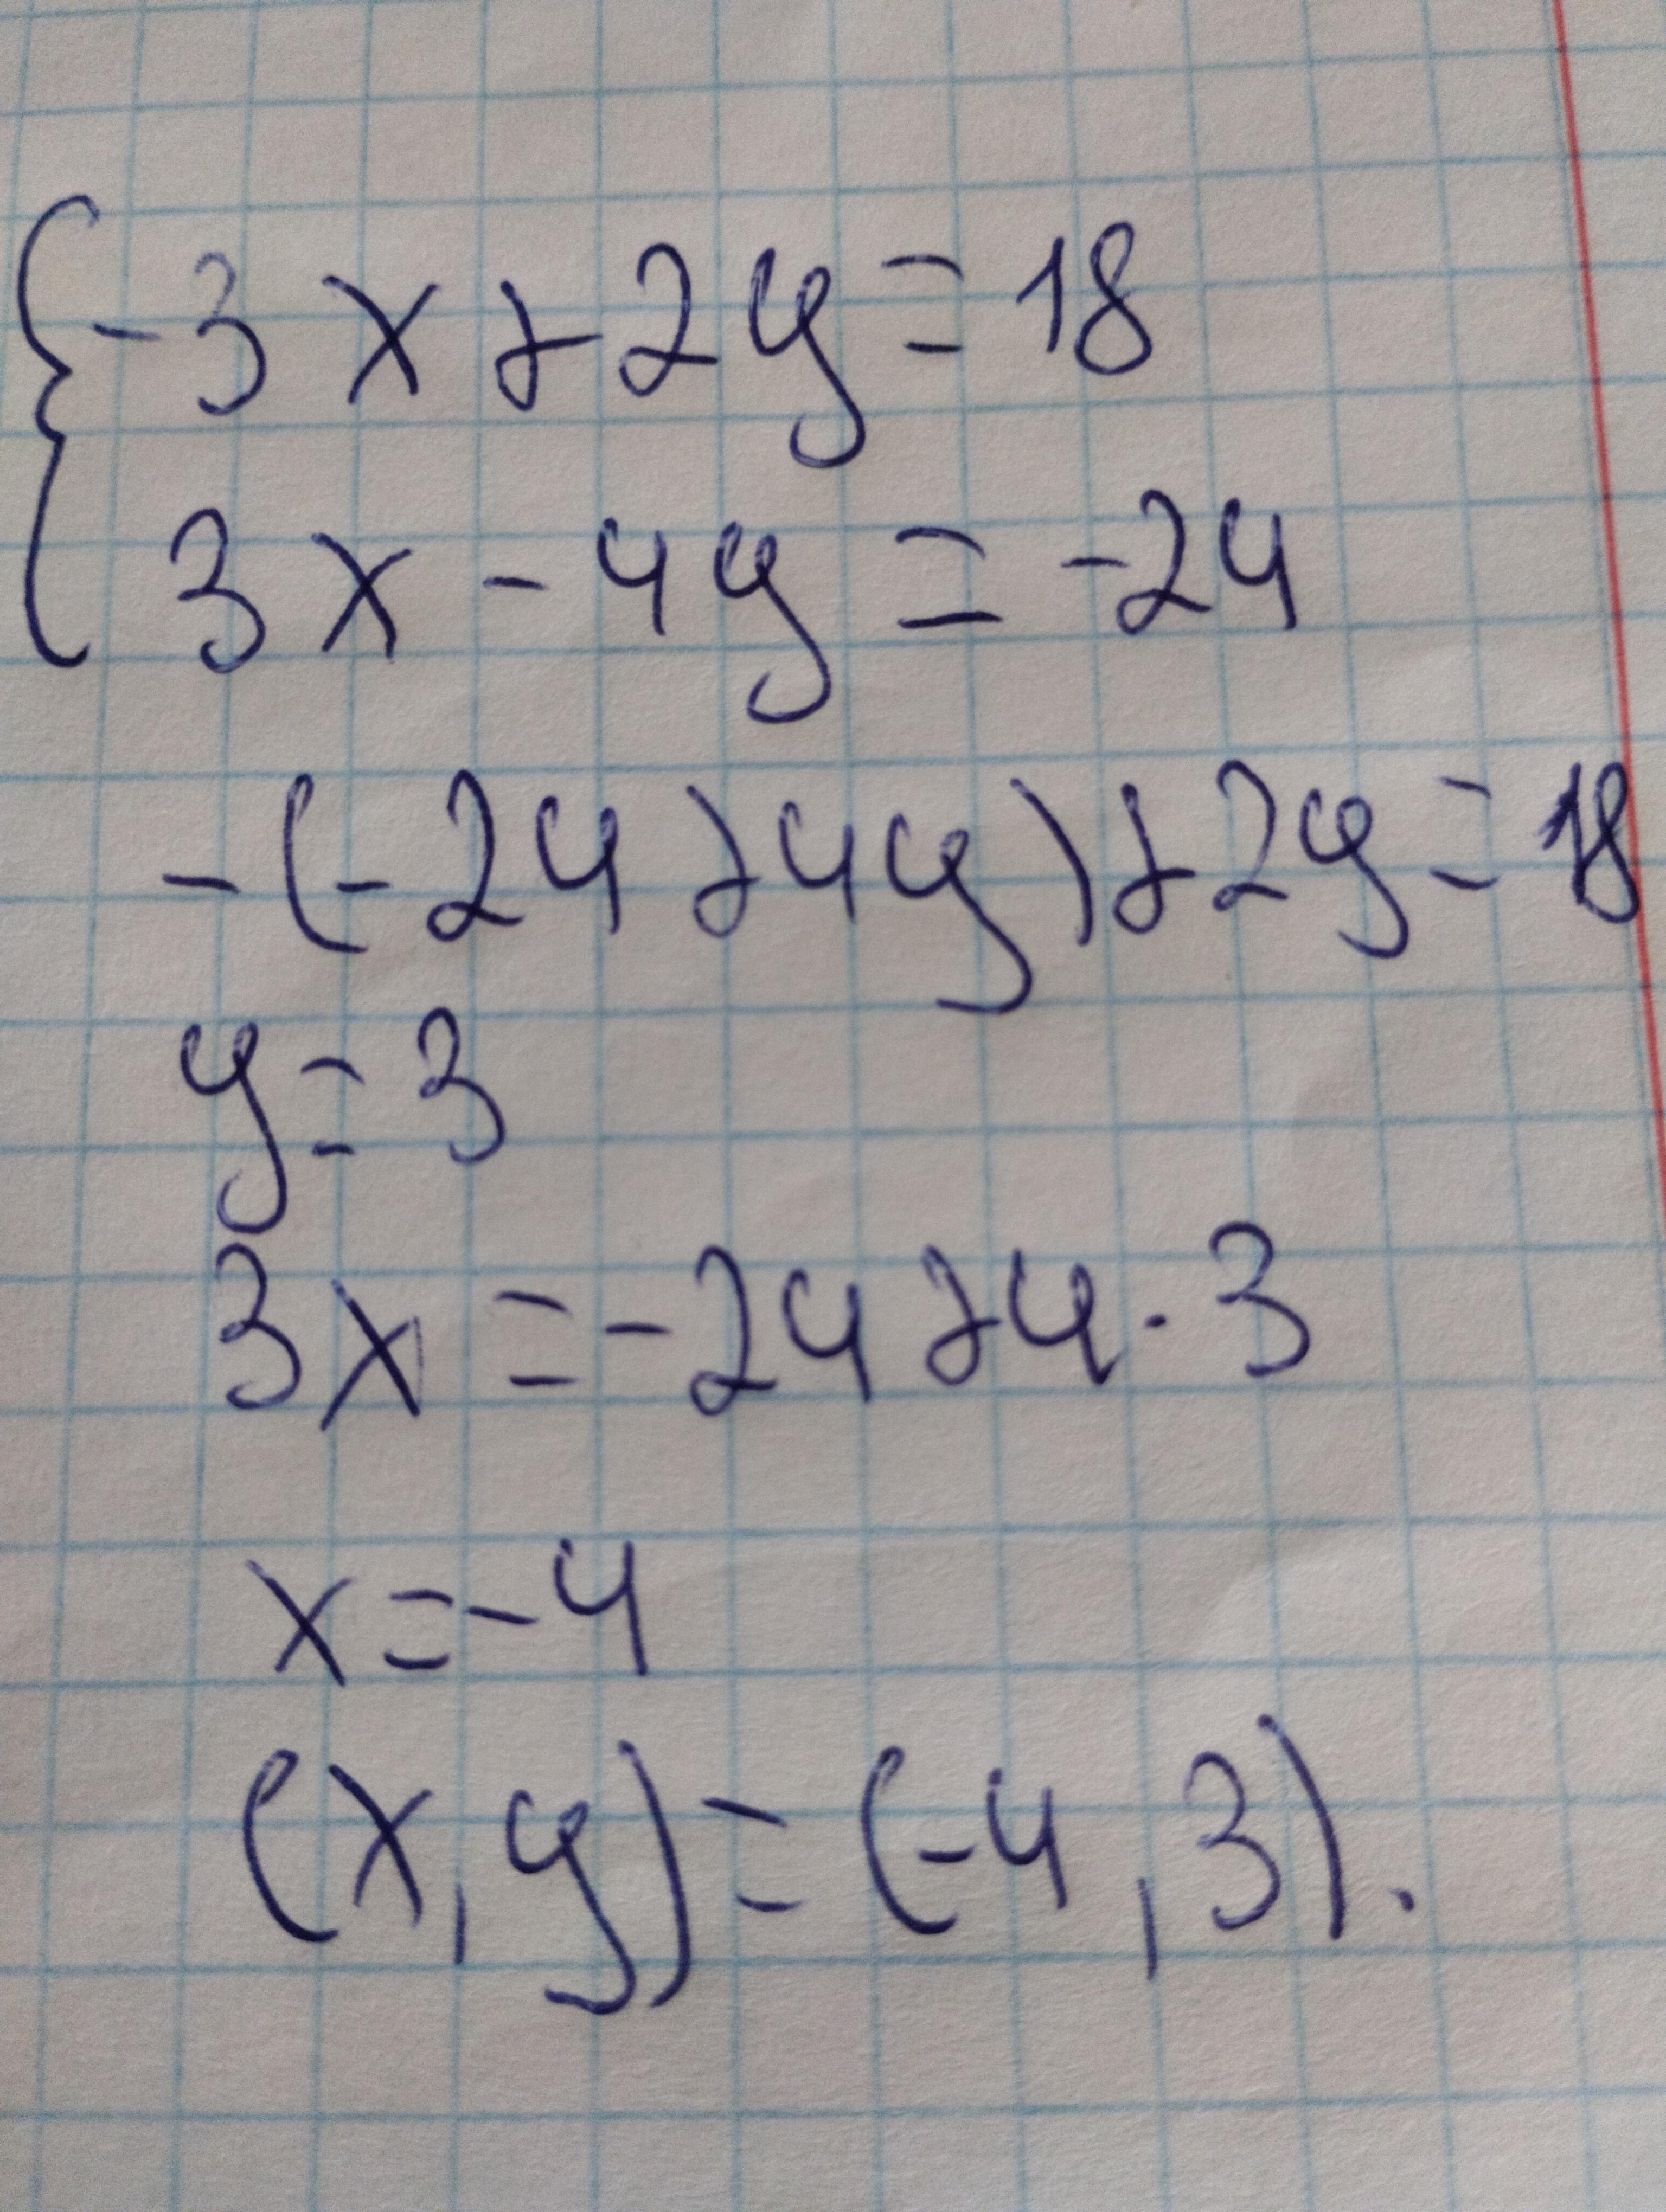 {-3x+2y=18
3x-4y=-24
-(-24+4y)+2y=18
y=3
3x=-24+4·3
x=-4
(x,y)=(-4,3).